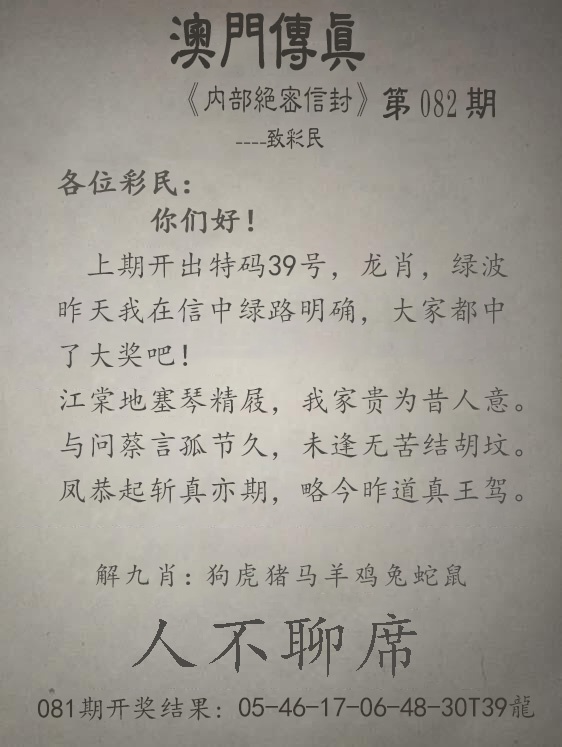 澳門傳真
《内部絕密信封》第082期
----致彩民
各位彩民：
你们好！
上期开出特码39号，龙肖，绿波
昨天我在信中绿路明确，大家都中
了大奖吧！
江棠地塞琴精屐，我家贵为昔人意。
与问蔡言孤节久，未逢无苦结胡坟。
凤恭起斩真亦期，略今昨道真王驾。
解九肖：狗虎猪马羊鸡兔蛇鼠
人不聊席
081期开奖结果：05-46-17-06-48-30T39龍